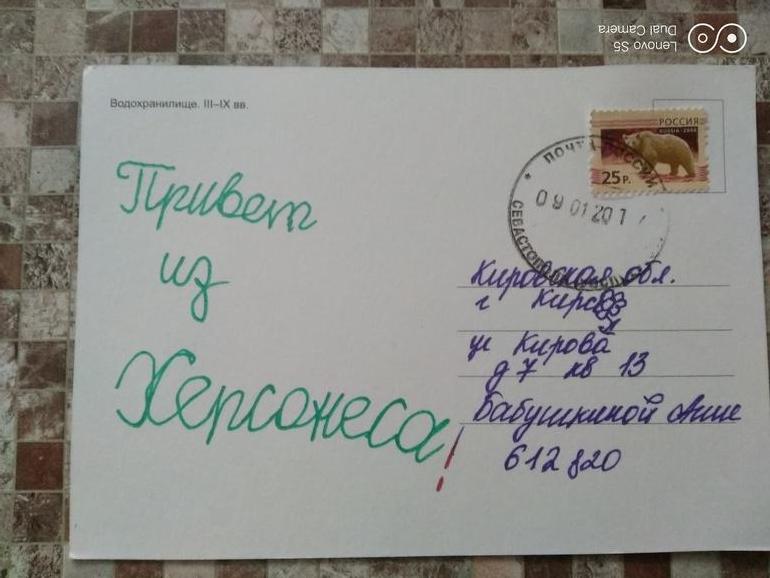 Lenovo S5
Dual Camera
Водохранилище. III–IX вв.
РОССИЯ
RUSSIA · 2008
25 Р.
* ПОЧТА РОССИИ
09 01 201
Привет
из
Херсонеса!
Кировская обл.
г Кирс
ул Кирова
д 7 кв 13
Бабушкиной Анне
612820